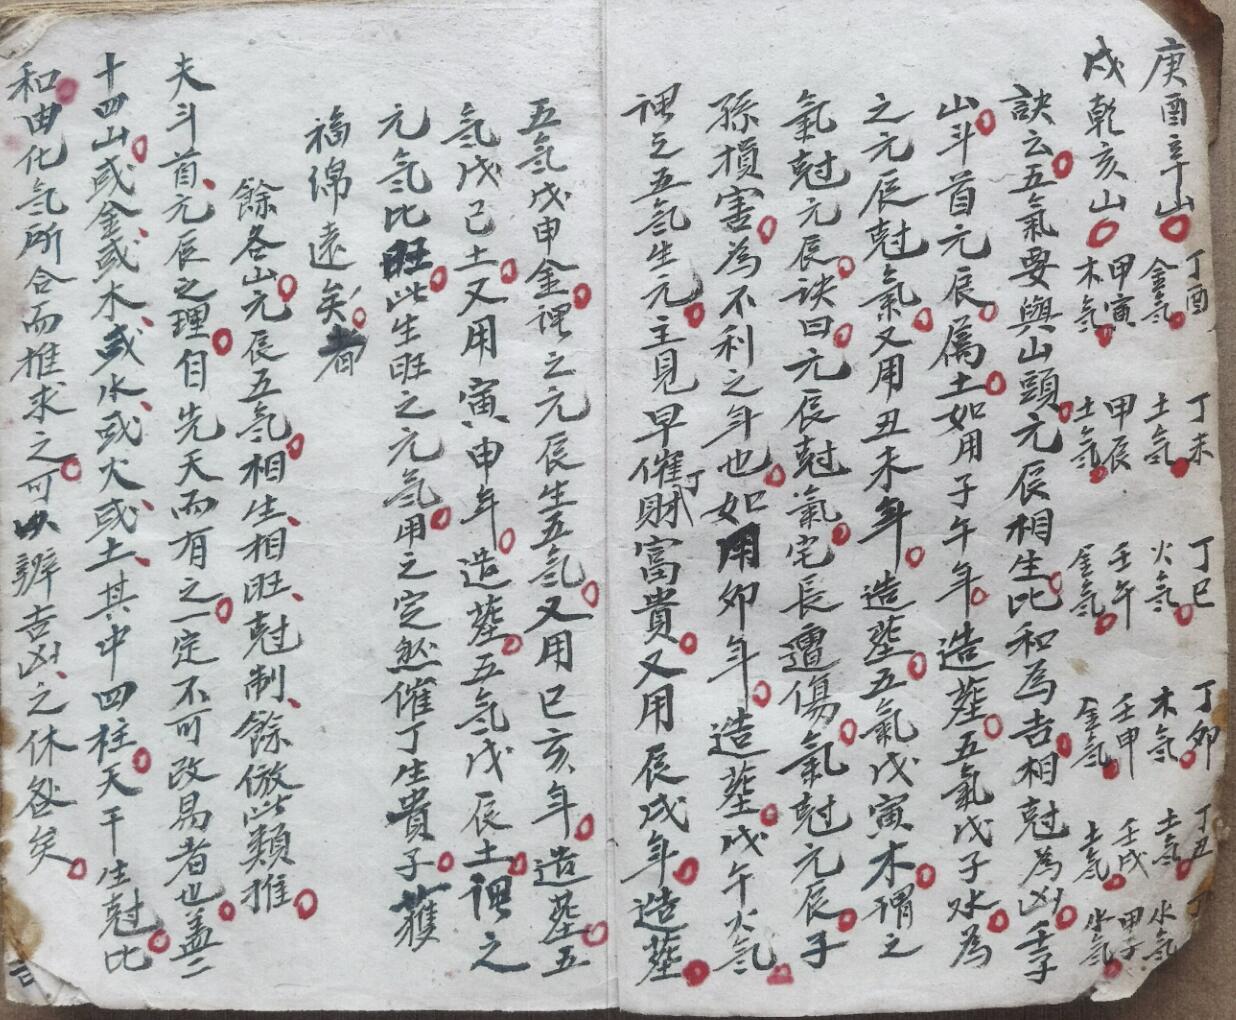 庚酉辛山 丁酉金氣 丁未土氣 丁巳火氣 丁卯木氣 丁丑土氣 水氣
戍乾亥山 甲寅木氣 甲辰土氣 壬午金氣 壬申金氣 壬戍土氣 甲子水氣
訣云五氣要與山頭元辰相生比和為吉相尅為凶壬子
山斗首元辰屬土如用子午年造塟五氣戊子水為
之元辰尅氣又用丑未年造塟五氣戊寅木謂之
氣尅元辰訣曰元辰尅氣宅長遭傷氣尅元辰子
孫損害為不利之年也如用卯年造塟戊午火氣
謂之五氣生元主見早催丁財富貴又用辰戍年造塟
五氣戊申金謂之元辰生五氣又用巳亥年造塟五
氣戊己土又用寅申年造塟五氣戊辰土謂之
元氣比旺此生旺之元氣用之定然催丁生貴子獲
福綿遠矣者
餘各山元辰五氣相生相旺尅制餘倣此類推
夫斗首元辰之理自先天而有之一定不可改易者也盖二
十四山或金或木或水或火或土其中四柱天干生尅比
和由化氣所合而推求之可以辨吉凶之休咎矣